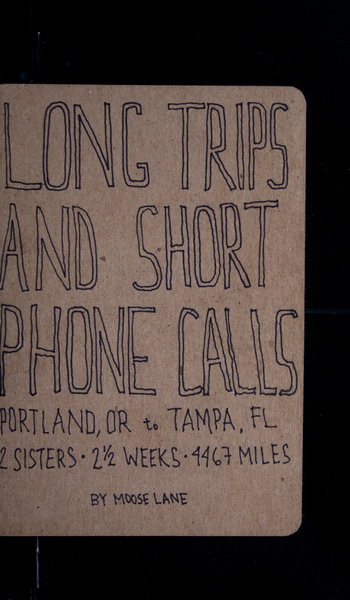 LONG TRIPS
AND SHORT
PHONE CALLS
PORTLAND, OR to TAMPA, FL
2 SISTERS · 2½ WEEKS · 4467 MILES
BY MOOSE LANE